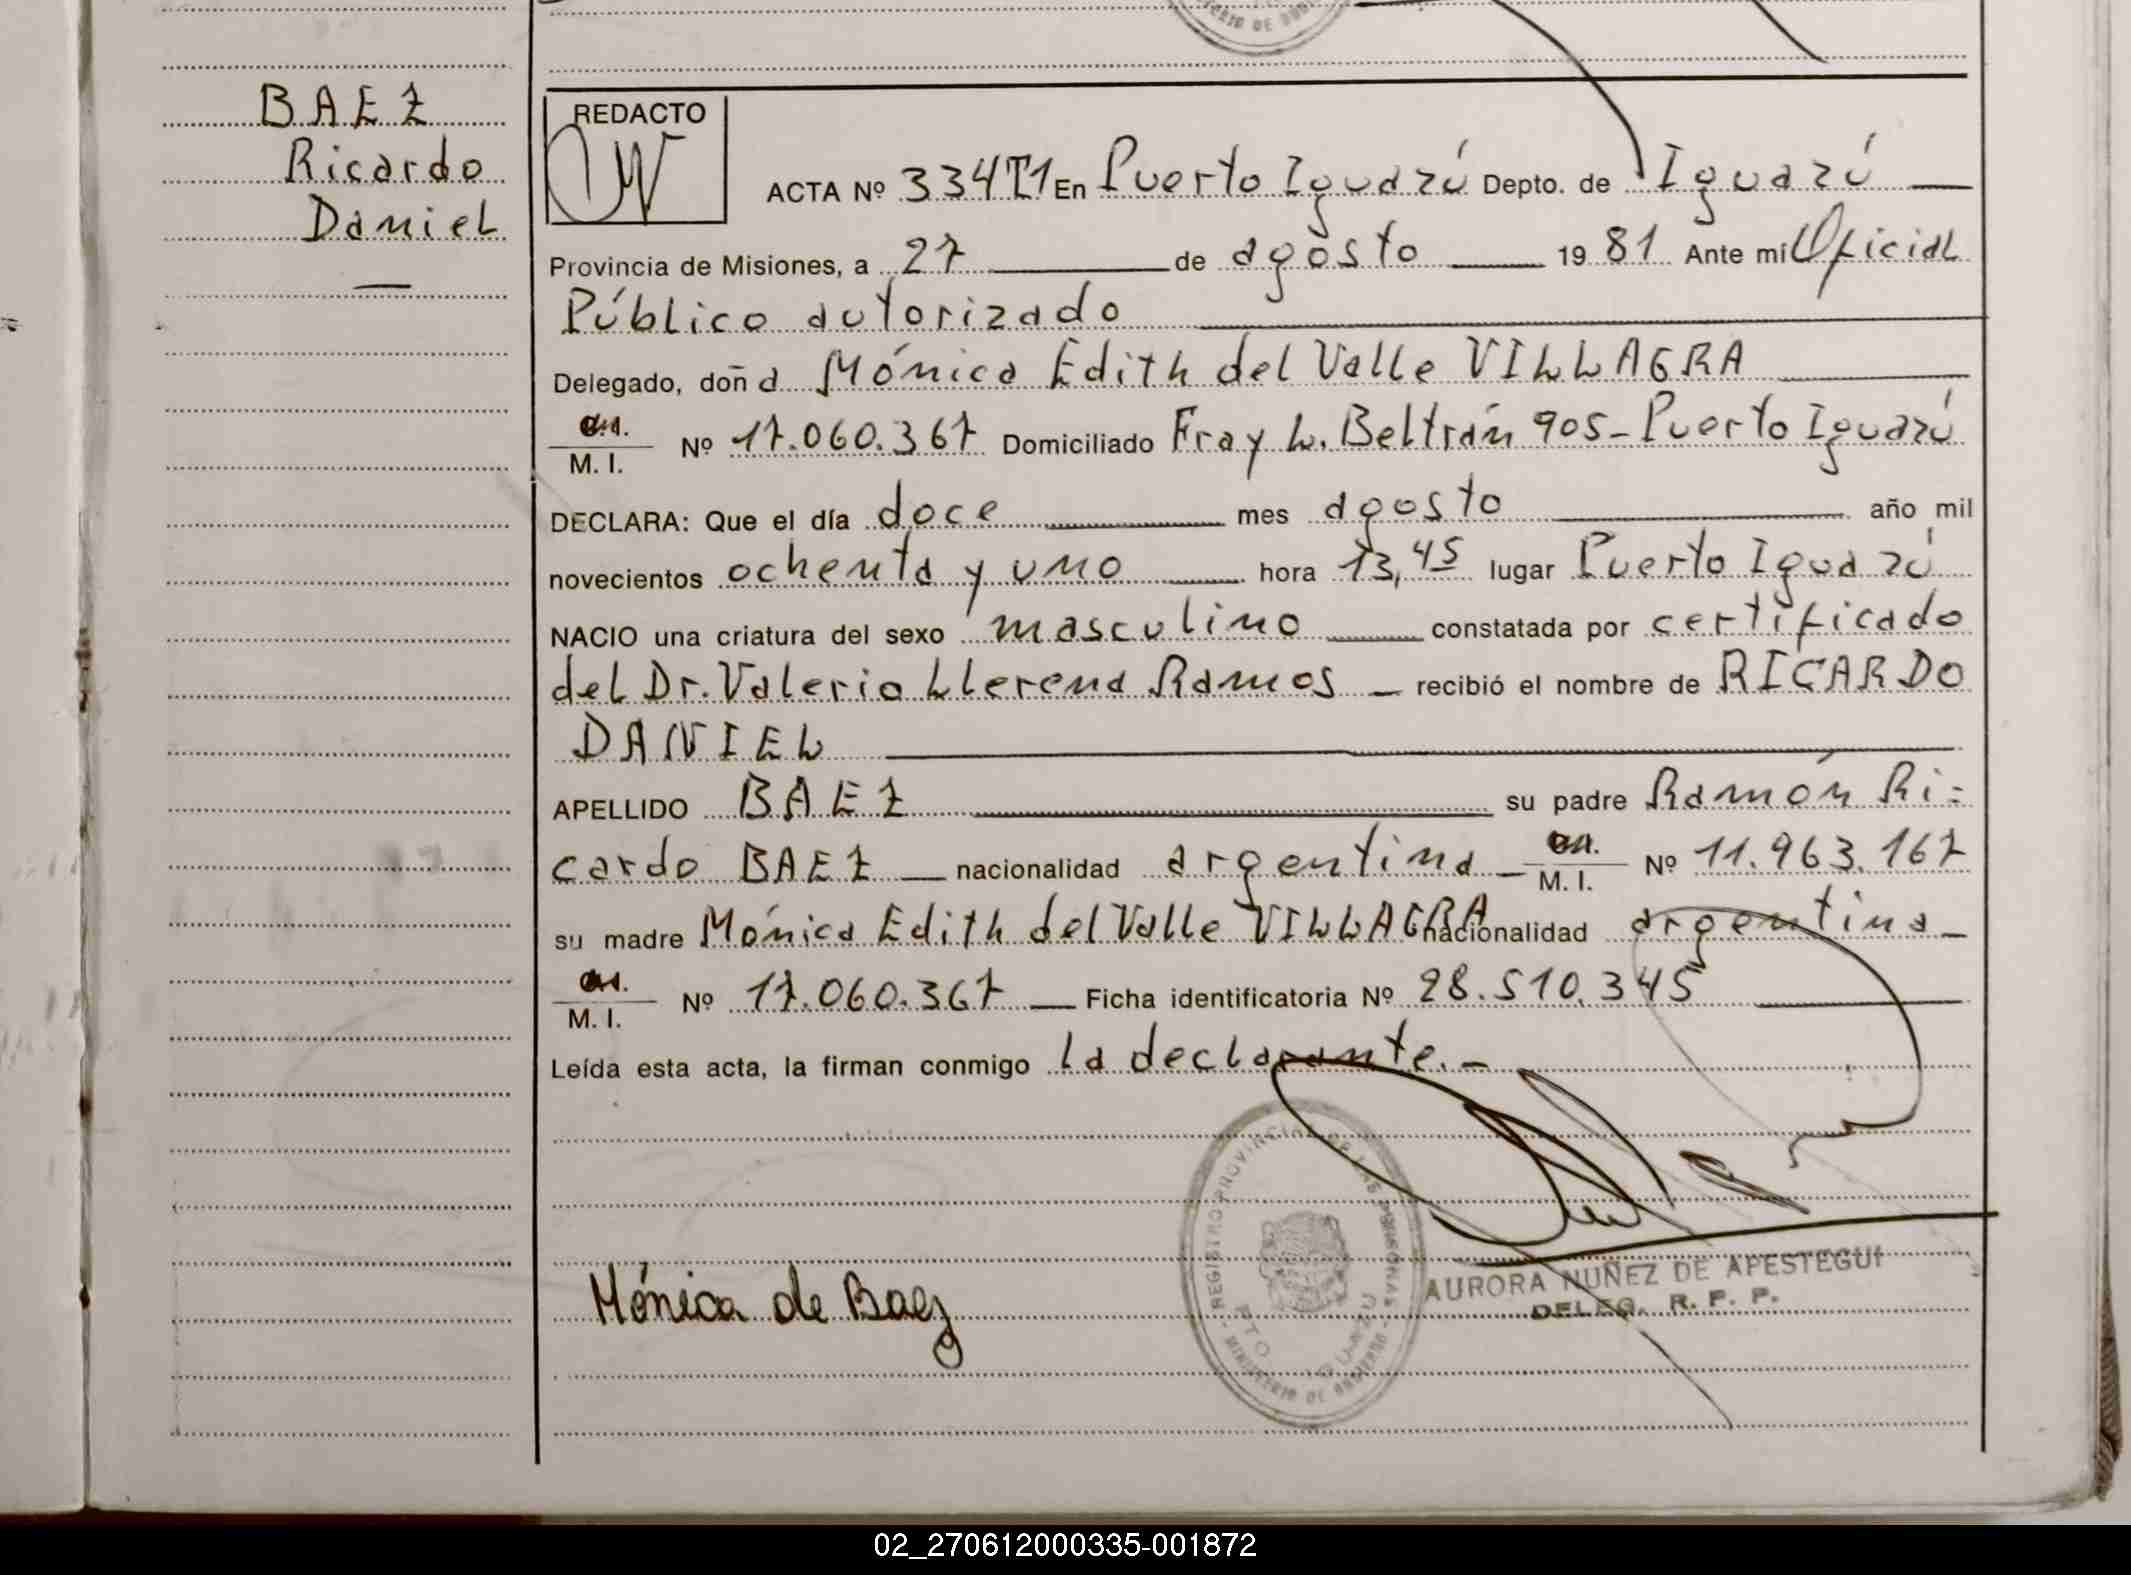 BAEZ
Ricardo
Daniel
REDACTO
ACTA Nº 334T1 En Puerto Iguazú Depto. de Iguazú
Provincia de Misiones, a 27 de agosto 1981 Ante mí Oficial
Público autorizado
Delegado, doña Mónica Edith del Valle VILLAGRA
M. I. Nº 17.060.367 Domiciliado Fray L. Beltrán 905 - Puerto Iguazú
DECLARA: Que el día doce mes agosto año mil
novecientos ochenta y uno hora 13,45 lugar Puerto Iguazú
NACIO una criatura del sexo masculino constatada por certificado
del Dr. Valerio Llerena Ramos recibió el nombre de RICARDO
DANIEL
APELLIDO BAEZ su padre Ramón Ri-
cardo BAEZ nacionalidad argentina M. I. Nº 11.963.167
su madre Mónica Edith del Valle VILLAGRA nacionalidad argentina
M. I. Nº 17.060.367 Ficha identificatoria Nº 28.510.345
Leída esta acta, la firman conmigo la declarante.-
REGISTRO PROVINCIAL DE LAS PERSONAS
MINISTERIO DE GOBIERNO
PTO IGUAZU
AURORA NUÑEZ DE APESTEGUI
DELEG. R. P. P.
Mónica de Baez
02_270612000335-001872